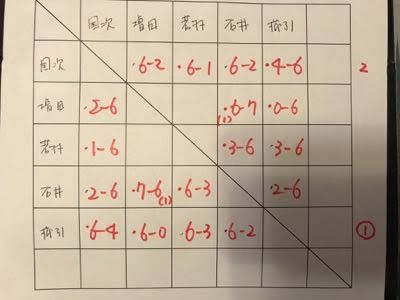 国次 増田 若村 石井
国次 ·6-2 ·6-1 ·6-2 ·4-6 2
増田 ·2-6 ·6-7 (1) ·0-6
若村 ·1-6 ·3-6 ·3-6
石井 ·2-6 ·7-6 (1) ·6-3 ·2-6
·6-4 ·6-0 ·6-3 ·6-2 ①